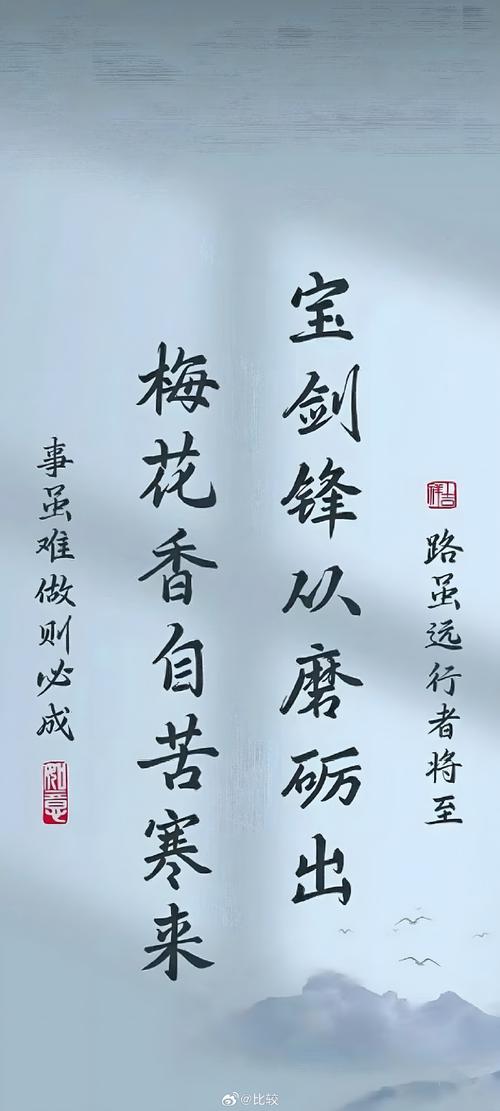 吉祥
路虽远行者将至
宝剑锋从磨砺出
梅花香自苦寒来
事虽难做则必成
如意
@比较